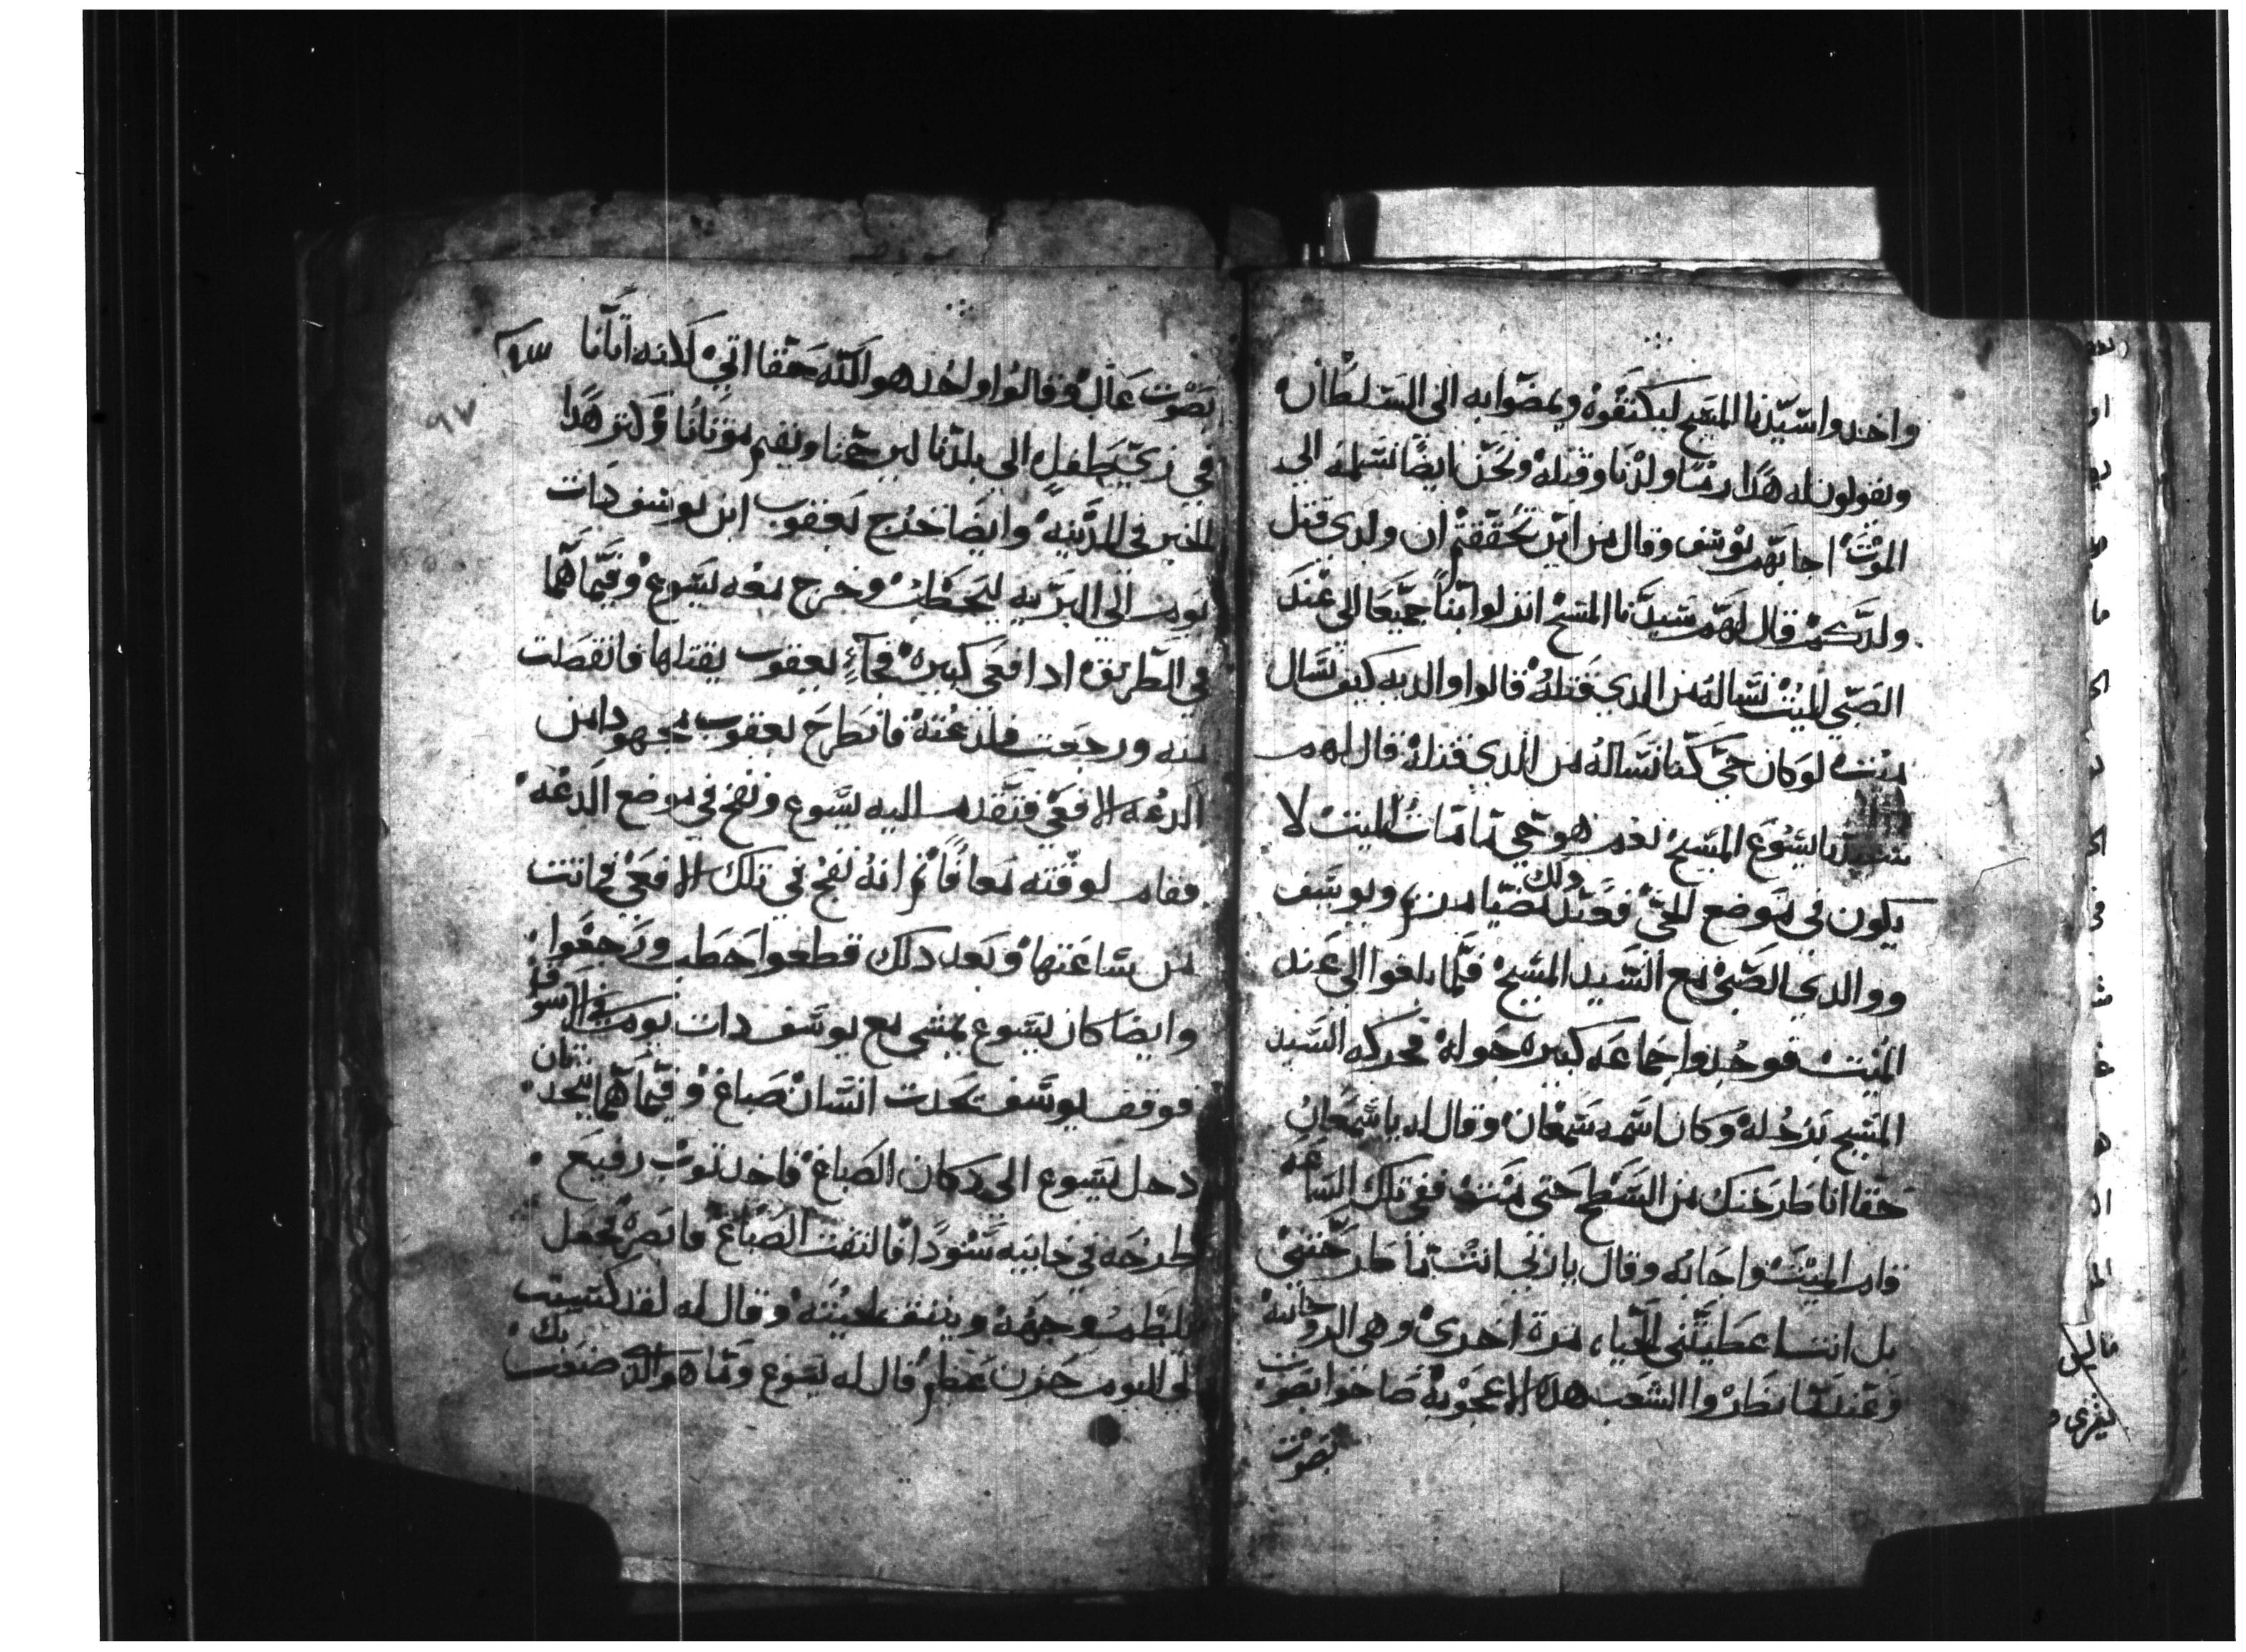 واخدوا سيدنا المسيح ليكتفوه ويمضوا به الى السلطان
ويقولون له هدا رمى ولدنا وقتله ونحن ايضا نسلمه الى
الموت اجابهم يوسف وقال من اين تحققتم ان ولدي قتل
ولدكم قال لهم سيدنا المسيح انزلوا بنا جميعا الى عند
الصبي الميت نساله من الدي قتله قالوا والديه كيف نسال
ميت لو كان حي كنا نساله من الدي قتله قال لهم
سيدنا يسوع المسيح نعم هو حي ما مات الميت لا
يكون في موضع الحي فعند دلك مضيا مريم ويوسف
ووالدي الصبي مع السيد المسيح فلما بلغوا الى عند
الميت فوجدوا جماعه كبيره حوله فحركه السيد
المسيح برجله وكان اسمه سمعان وقال له يا سمعان
حقا انا طرحتك من السطح حتى مت ففي تلك الساعه
قام الميت واجابه وقال يا ربي انت ما طرحتني
بل انت اعطيتني الحياء مرة اخرى وهى الروحانيه
وعند ما نظروا الشعب هده الاعجوبه صاحوا بصوت
بصوت
بصوت عال وقالوا واحد هو الله حقا اتي كلانه امانا
٩٧
في زي طفل الي بلدنا ليرحمنا ويقيم موتانا وكتر هدا
الخبر في المدينه وايضا خرج يعقوب ابن يوسف دات
يوم الي البريه ليحطب وخرج معه يسوع وفيما هما
في الطريق ادا افعي كبيره فجاء يعقوب يقتلها فانفصلت
منه ورجعت فلدغته فانطرح يعقوب مجهودا من
الدغه الافعي فتقدم اليه يسوع ونفخ في موضع الدغه
فقام لوقته معافا ثم انه نفخ في تلك الافعي فماتت
من ساعتها وبعد دلك قطعوا حطب ورجعوا
وايضا كان يسوع يمشي مع يوسف دات يوم في الاسوق
فوقف يوسف تحدت انسان صباغ وفيما هما يتحدتان
دخل يسوع الي دكان الصباغ فاخد توب رفيع
طرحه في خابيه سودا فالتفت الصباغ فابصره فجعل
يلطم وجهه وينتف لحيته وقال له لقد كسبت
لي اليوم حزن عظم قال له يسوع وما هو الدي صنعت بك